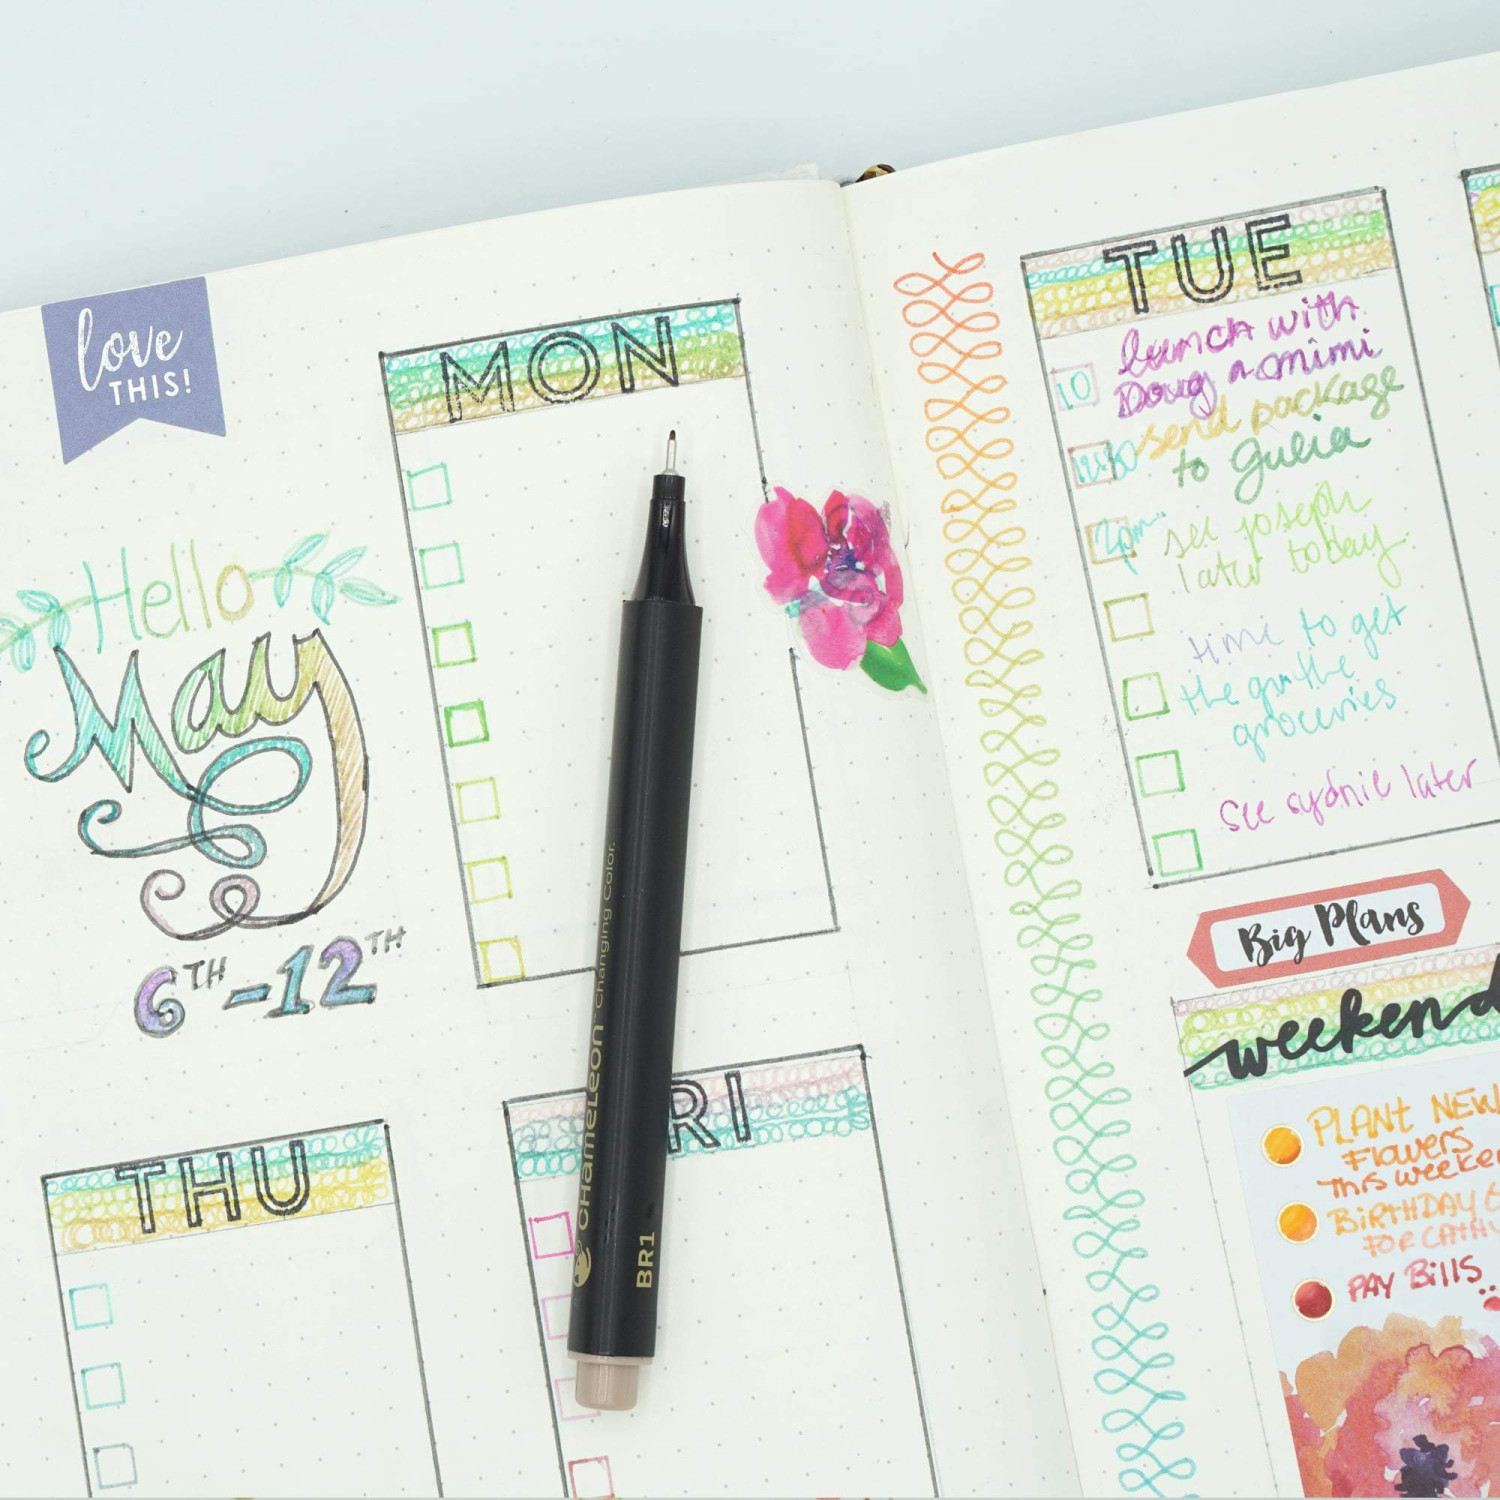 love
THIS!
Hello
May
6TH-12TH
MON
THU
RI
CHAMELEON Changing Color.
BR1
TUE
10
lunch with
Doug n mimi
send package
to Gulia
2pm
see joseph
later today
time to get
the
groceries
See sydnie later
Big Plans
weekend
PLANT NEW
Flowers
This weeken
BiRTHDAY G
FOR CATHY
PAY Bills..